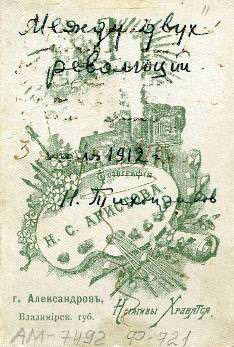 Между двух
революций.
3 июля 1912 г.
Фотографія
Н. С. АНИСОВА.
Н. Тихонравов
г. Александровъ,
Владимірск. губ.
Негативы Хранятся.
АМ-7492 Ф-721